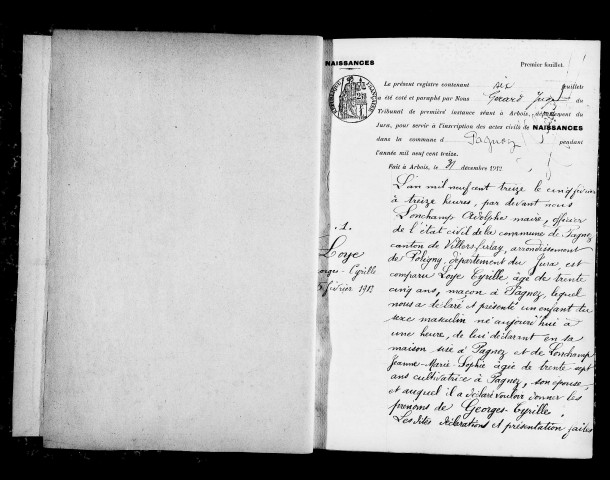 NAISSANCES
Premier feuillet.
Le présent registre contenant six feuillets
a été coté et paraphé par Nous Gérard Juge du
Tribunal de première instance séant à Arbois, département du
Jura, pour servir à l'inscription des actes civils de NAISSANCES
dans la commune d Pagnoz pendant
l'année mil neuf cent treize.
Fait à Arbois, le 31 décembre 1912
L'an mil neuf cent treize le cinq février
à treize heures, par devant nous
Lonchamp Adolphe maire, officier
de l'état civil de la commune de Pagnoz
canton de Villers-farlay, arrondissement
de Poligny, département du Jura, est
comparu Loye Cyrille, âgé de trente
cinq ans, maçon à Pagnoz, lequel
nous a déclaré et présenté un enfant du
sexe masculin né aujourd'hui à
une heure, de lui déclarant en sa
maison sise à Pagnoz et de Lonchamp
Jeanne-Marie-Sophie âgée de trente sept
ans cultivatrice à Pagnoz, son épouse
et auquel il a déclaré vouloir donner les
prénoms de Georges-Cyrille.
Les dites déclarations et présentation faites
. 1.
Loye
orges-Cyrille
5 février 1913